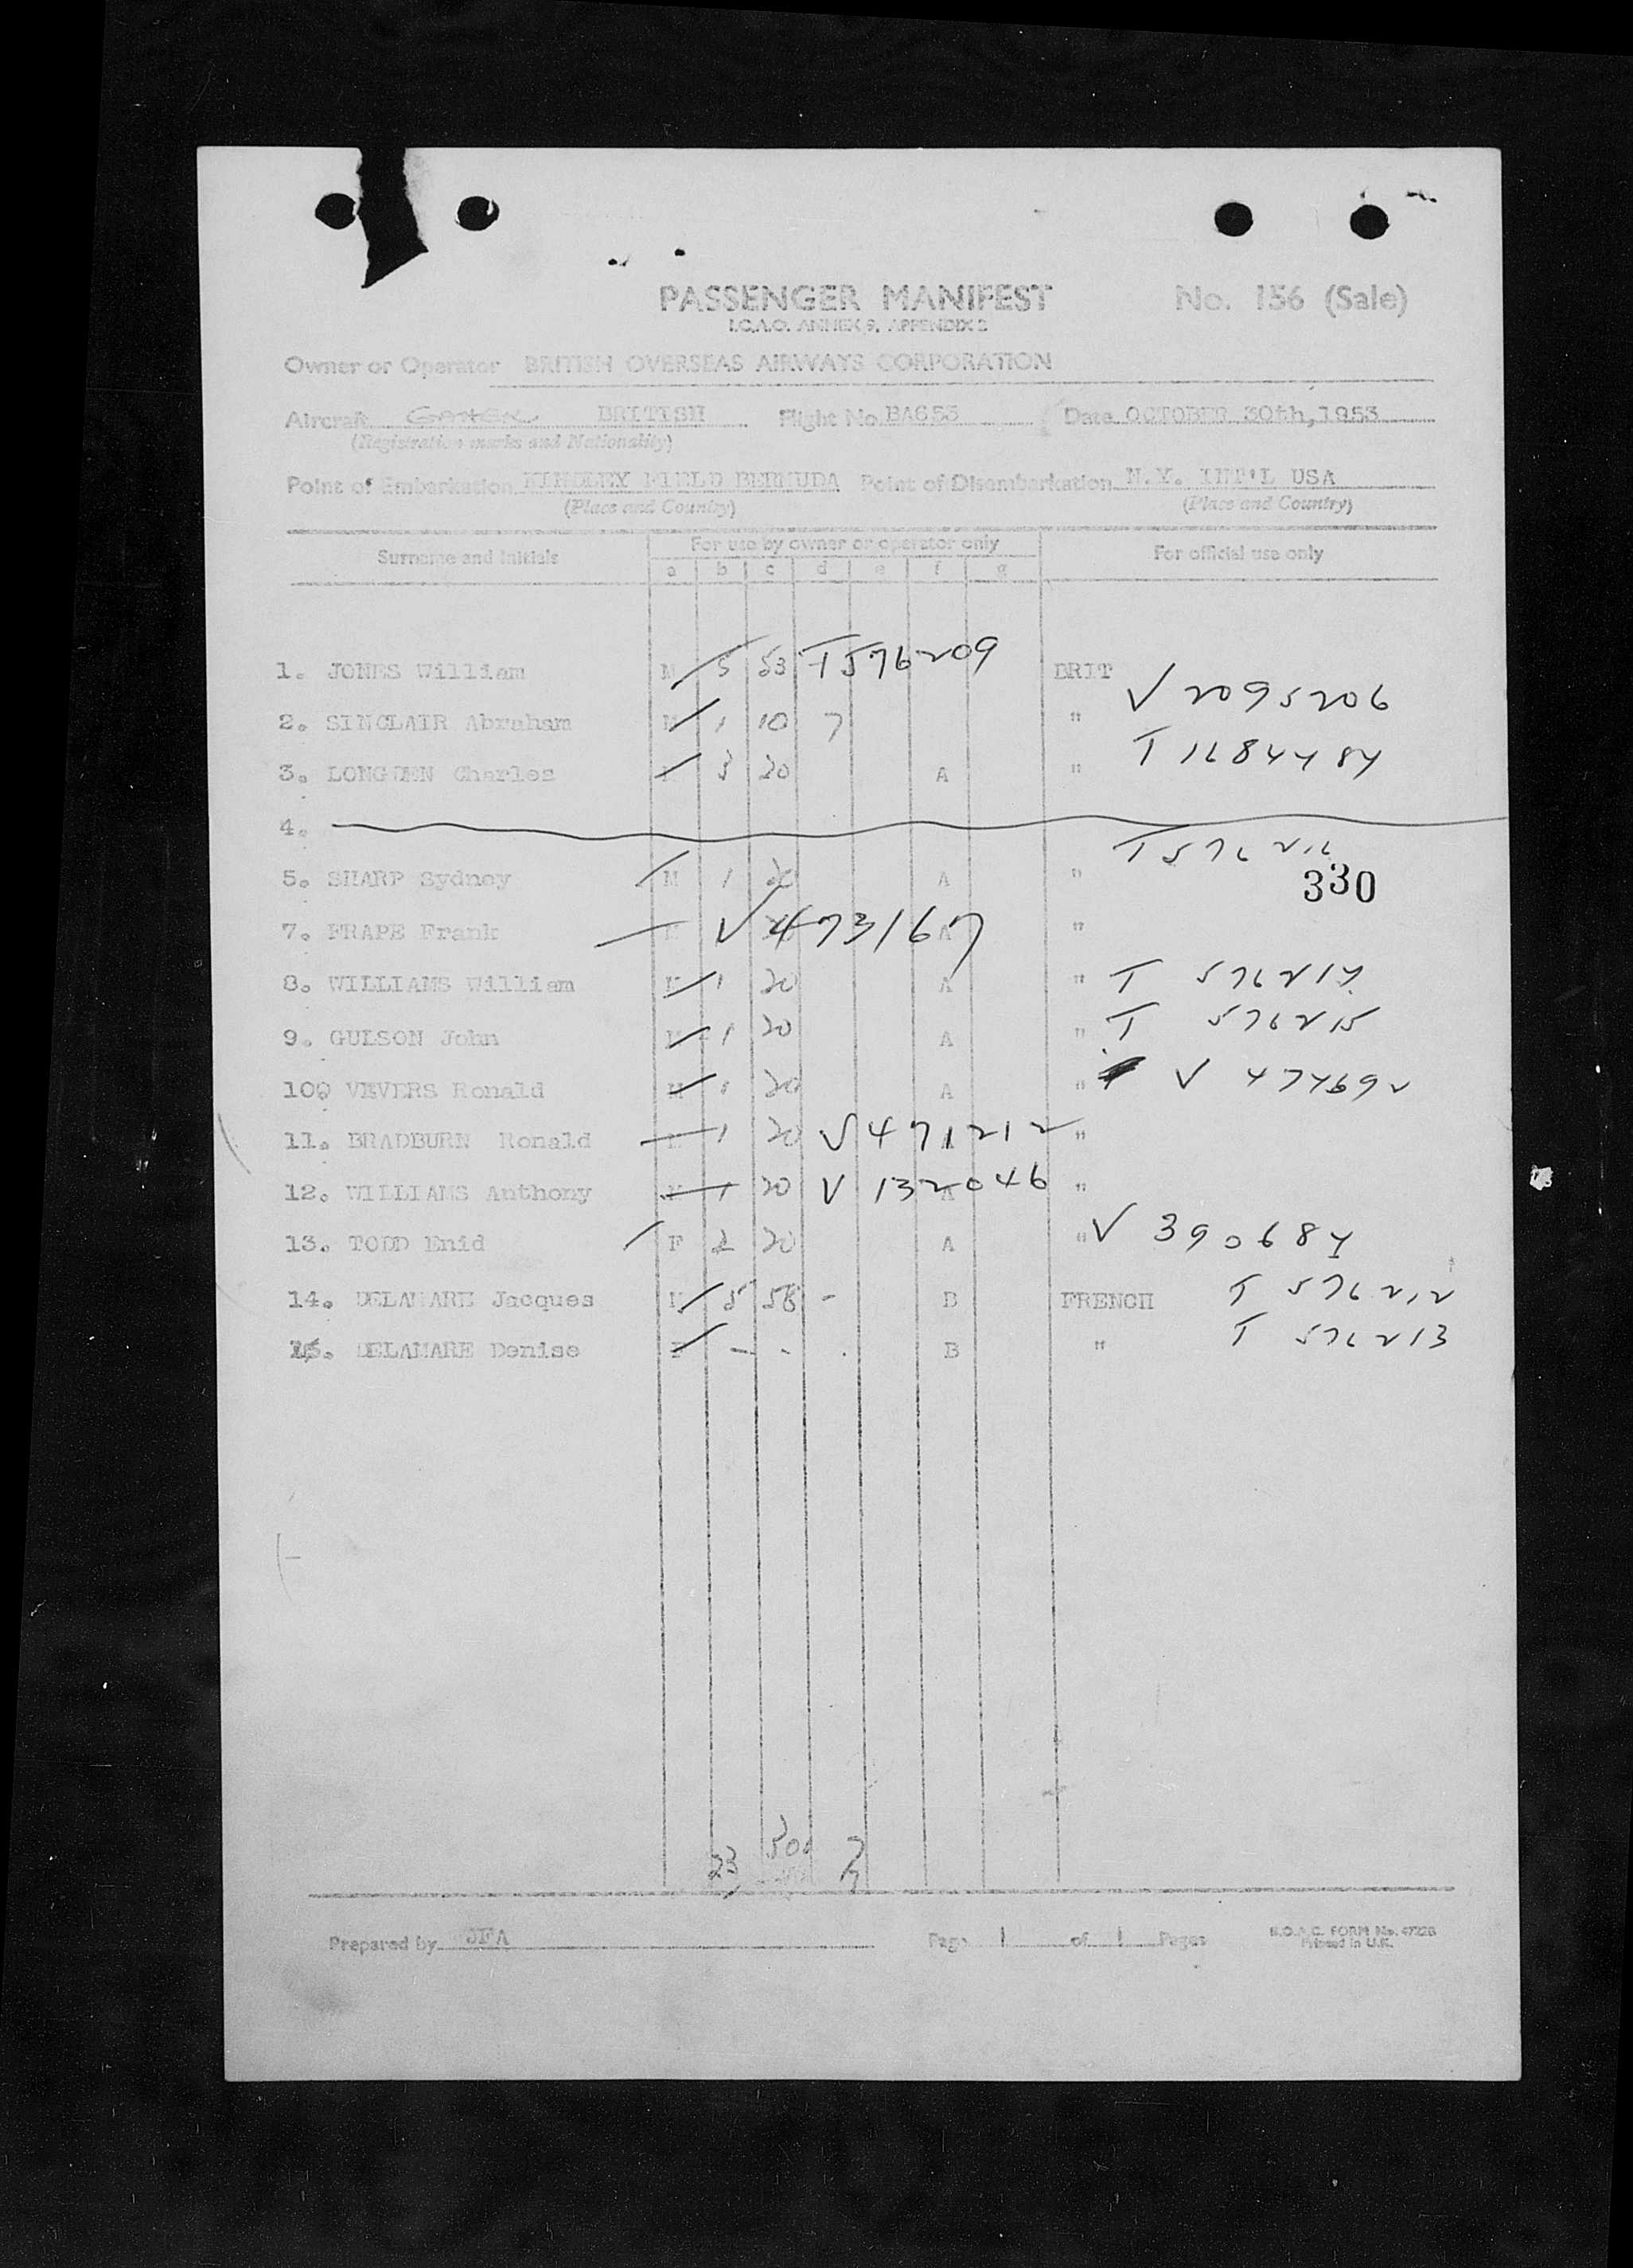 PASSENGER MANIFEST No. 156 (Sale)
I.C.A.O. ANNEX 9, APPENDIX 2
Owner or Operator BRITISH OVERSEAS AIRWAYS CORPORATION
Aircraft BRITISH Flight No. BA653 Date OCTOBER 30th, 1953
(Registration marks and Nationality)
Point of Embarkation KINDLEY FIELD BERMUDA Point of Disembarkation N.Y. INT'L USA
(Place and Country) (Place and Country)
Surname and Initials For use by owner or operator only For official use only
a b c d e f g
1. JONES William M 5 53 T 576209 BRIT
V 2095206
2. SINCLAIR Abraham M 1 10 7 "
T 1684484
3. LONGDEN Charles 3 20 A "
4.
T 576216
5. SHARP Sydney M 1 20 A "
330
7. FRAPE Frank V 473167 A "
8. WILLIAMS William M 1 20 A " T 576214
9. GULSON John M 1 20 A " T 576215
10. VEVERS Ronald M 1 20 A " V 474692
11. BRADBURN Ronald 1 20 V 471212 "
12. WILLIAMS Anthony M 1 20 V 132046 A "
13. TODD Enid F 2 20 A " V 390684
14. DELAMARE Jacques M 5 58 - B FRENCH T 576212
15. DELAMARE Denise F - - B " T 576213
23
Prepared by JFA Page 1 of 1 Pages B.O.A.C. FORM No. 4722B
Printed in U.K.